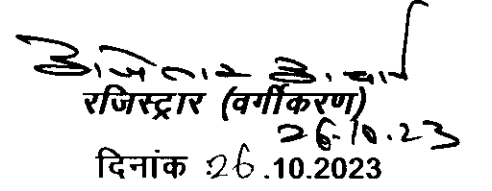 रजिस्ट्रार (वर्गीकरण)
26.10.23
दिनांक 26.10.2023